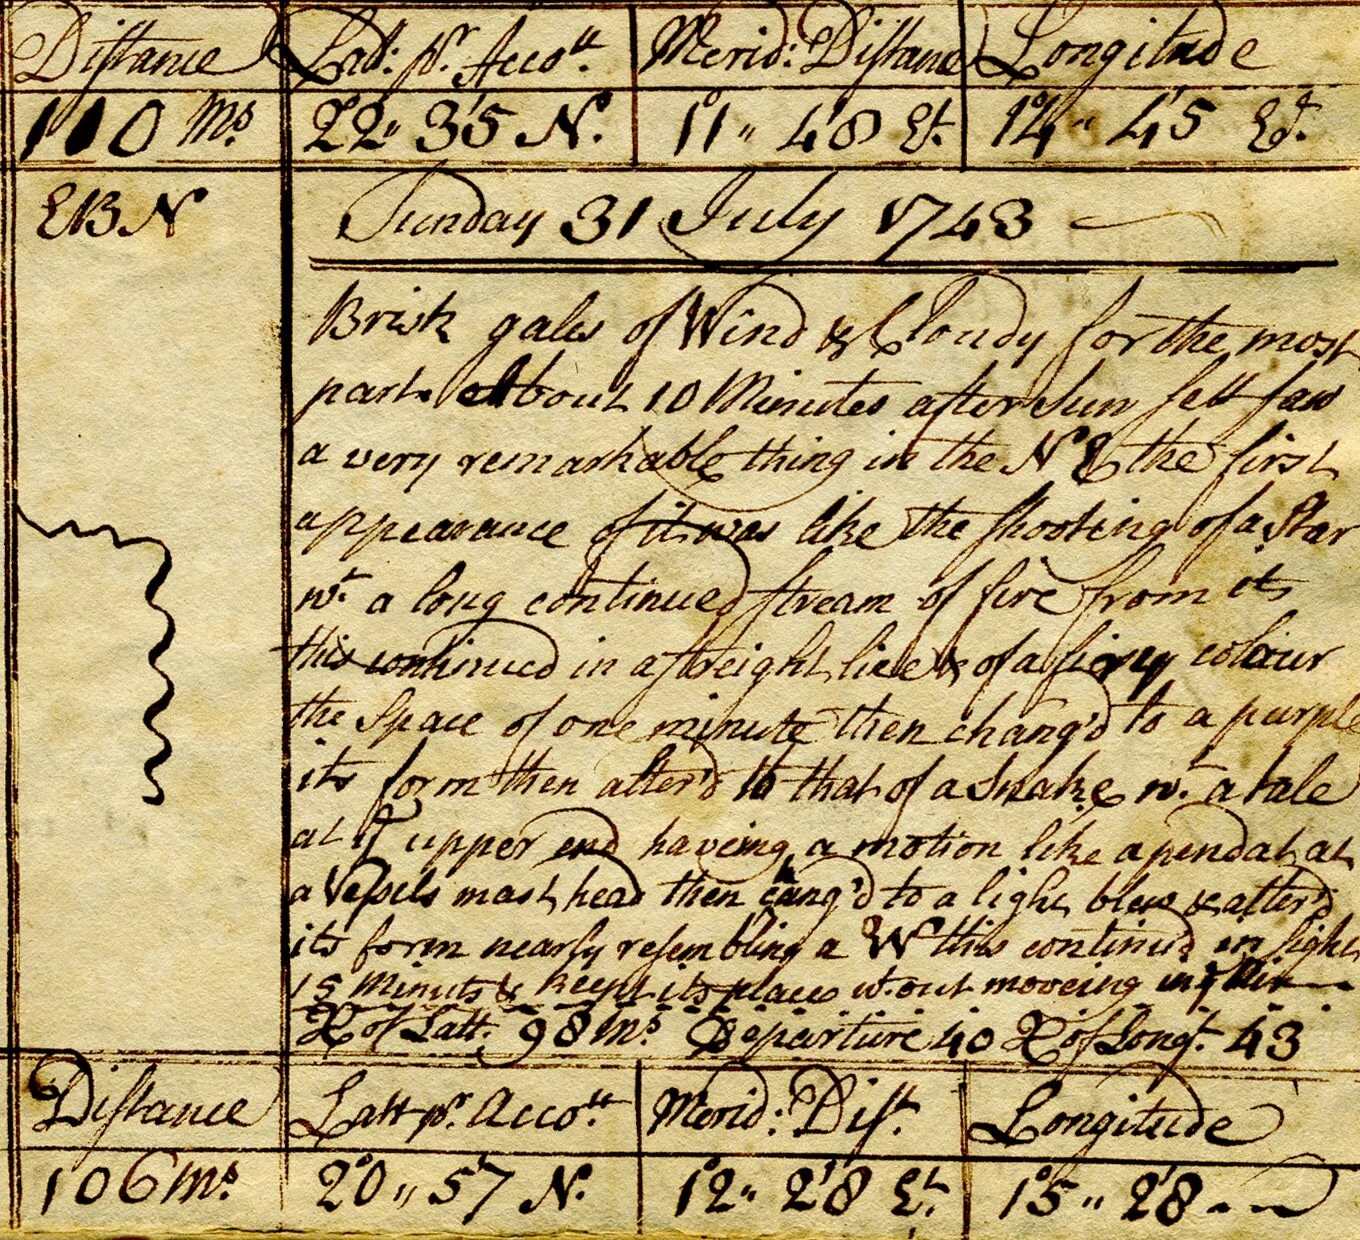 Distance Lat: pr. Accott. Merid: Distance Longitude
110 Ms. 22° " 35' N. 11° " 48 Et. 14° " 45 Et.
EBN Sunday 31 July 1743
Brisk gales of Wind & Cloudy for the most
part. About 10 Minutes after Sun sett saw
a very remarkable thing in the N E the first
appearance of it was like the shooting of a Star
wt. a long continued stream of fire from its
this continued in a streight line & of a firey colour
the space of one minute then chang'd to a purple
its form then alter'd to that of a Snake wt. a tale
at ye upper end haveing a motion like a pendat at
a Vessels mast head then cang'd to a light blew & alter'd
its form nearly resembling a W this continu'd in sight
15 minuts & keept its place wt.out moveing in ye Air
D of Latt. 98 Ms. Departure 40 D of Longt. 43
Distance Latt pr. Accott. Merid: Dist. Longitude
106 Ms. 20° " 57' N. 12° " 28' Et. 15° " 28'